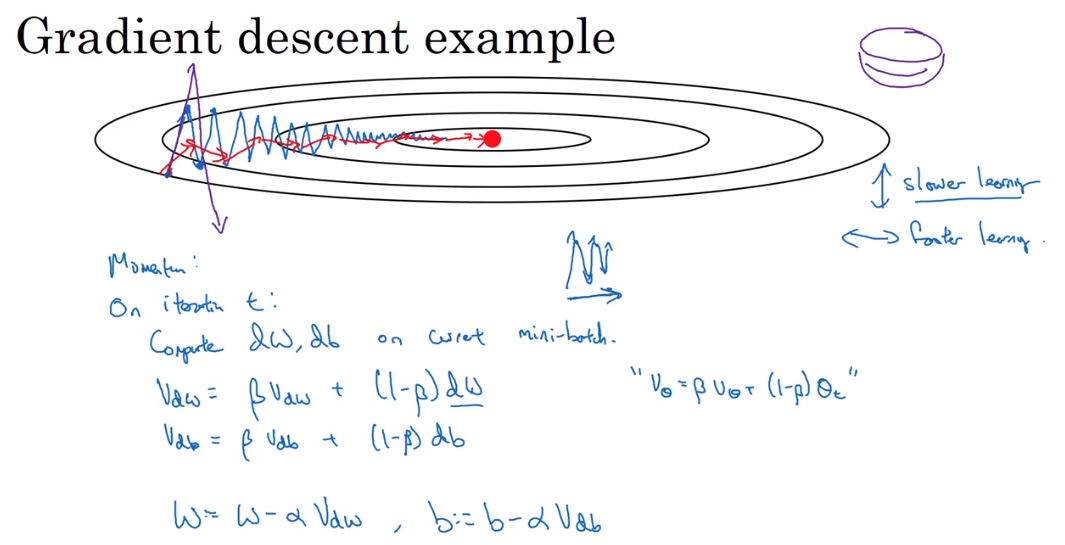 Gradient descent example
↕ slower learning
↔ faster learning.
Momentum:
On iteration t:
Compute dW, db on current mini-batch.
Vdw = β Vdw + (1-β) dW
"Vθ = β Vθ + (1-β) θt"
Vdb = β Vdb + (1-β) db
W := W - α Vdw , b := b - α Vdb